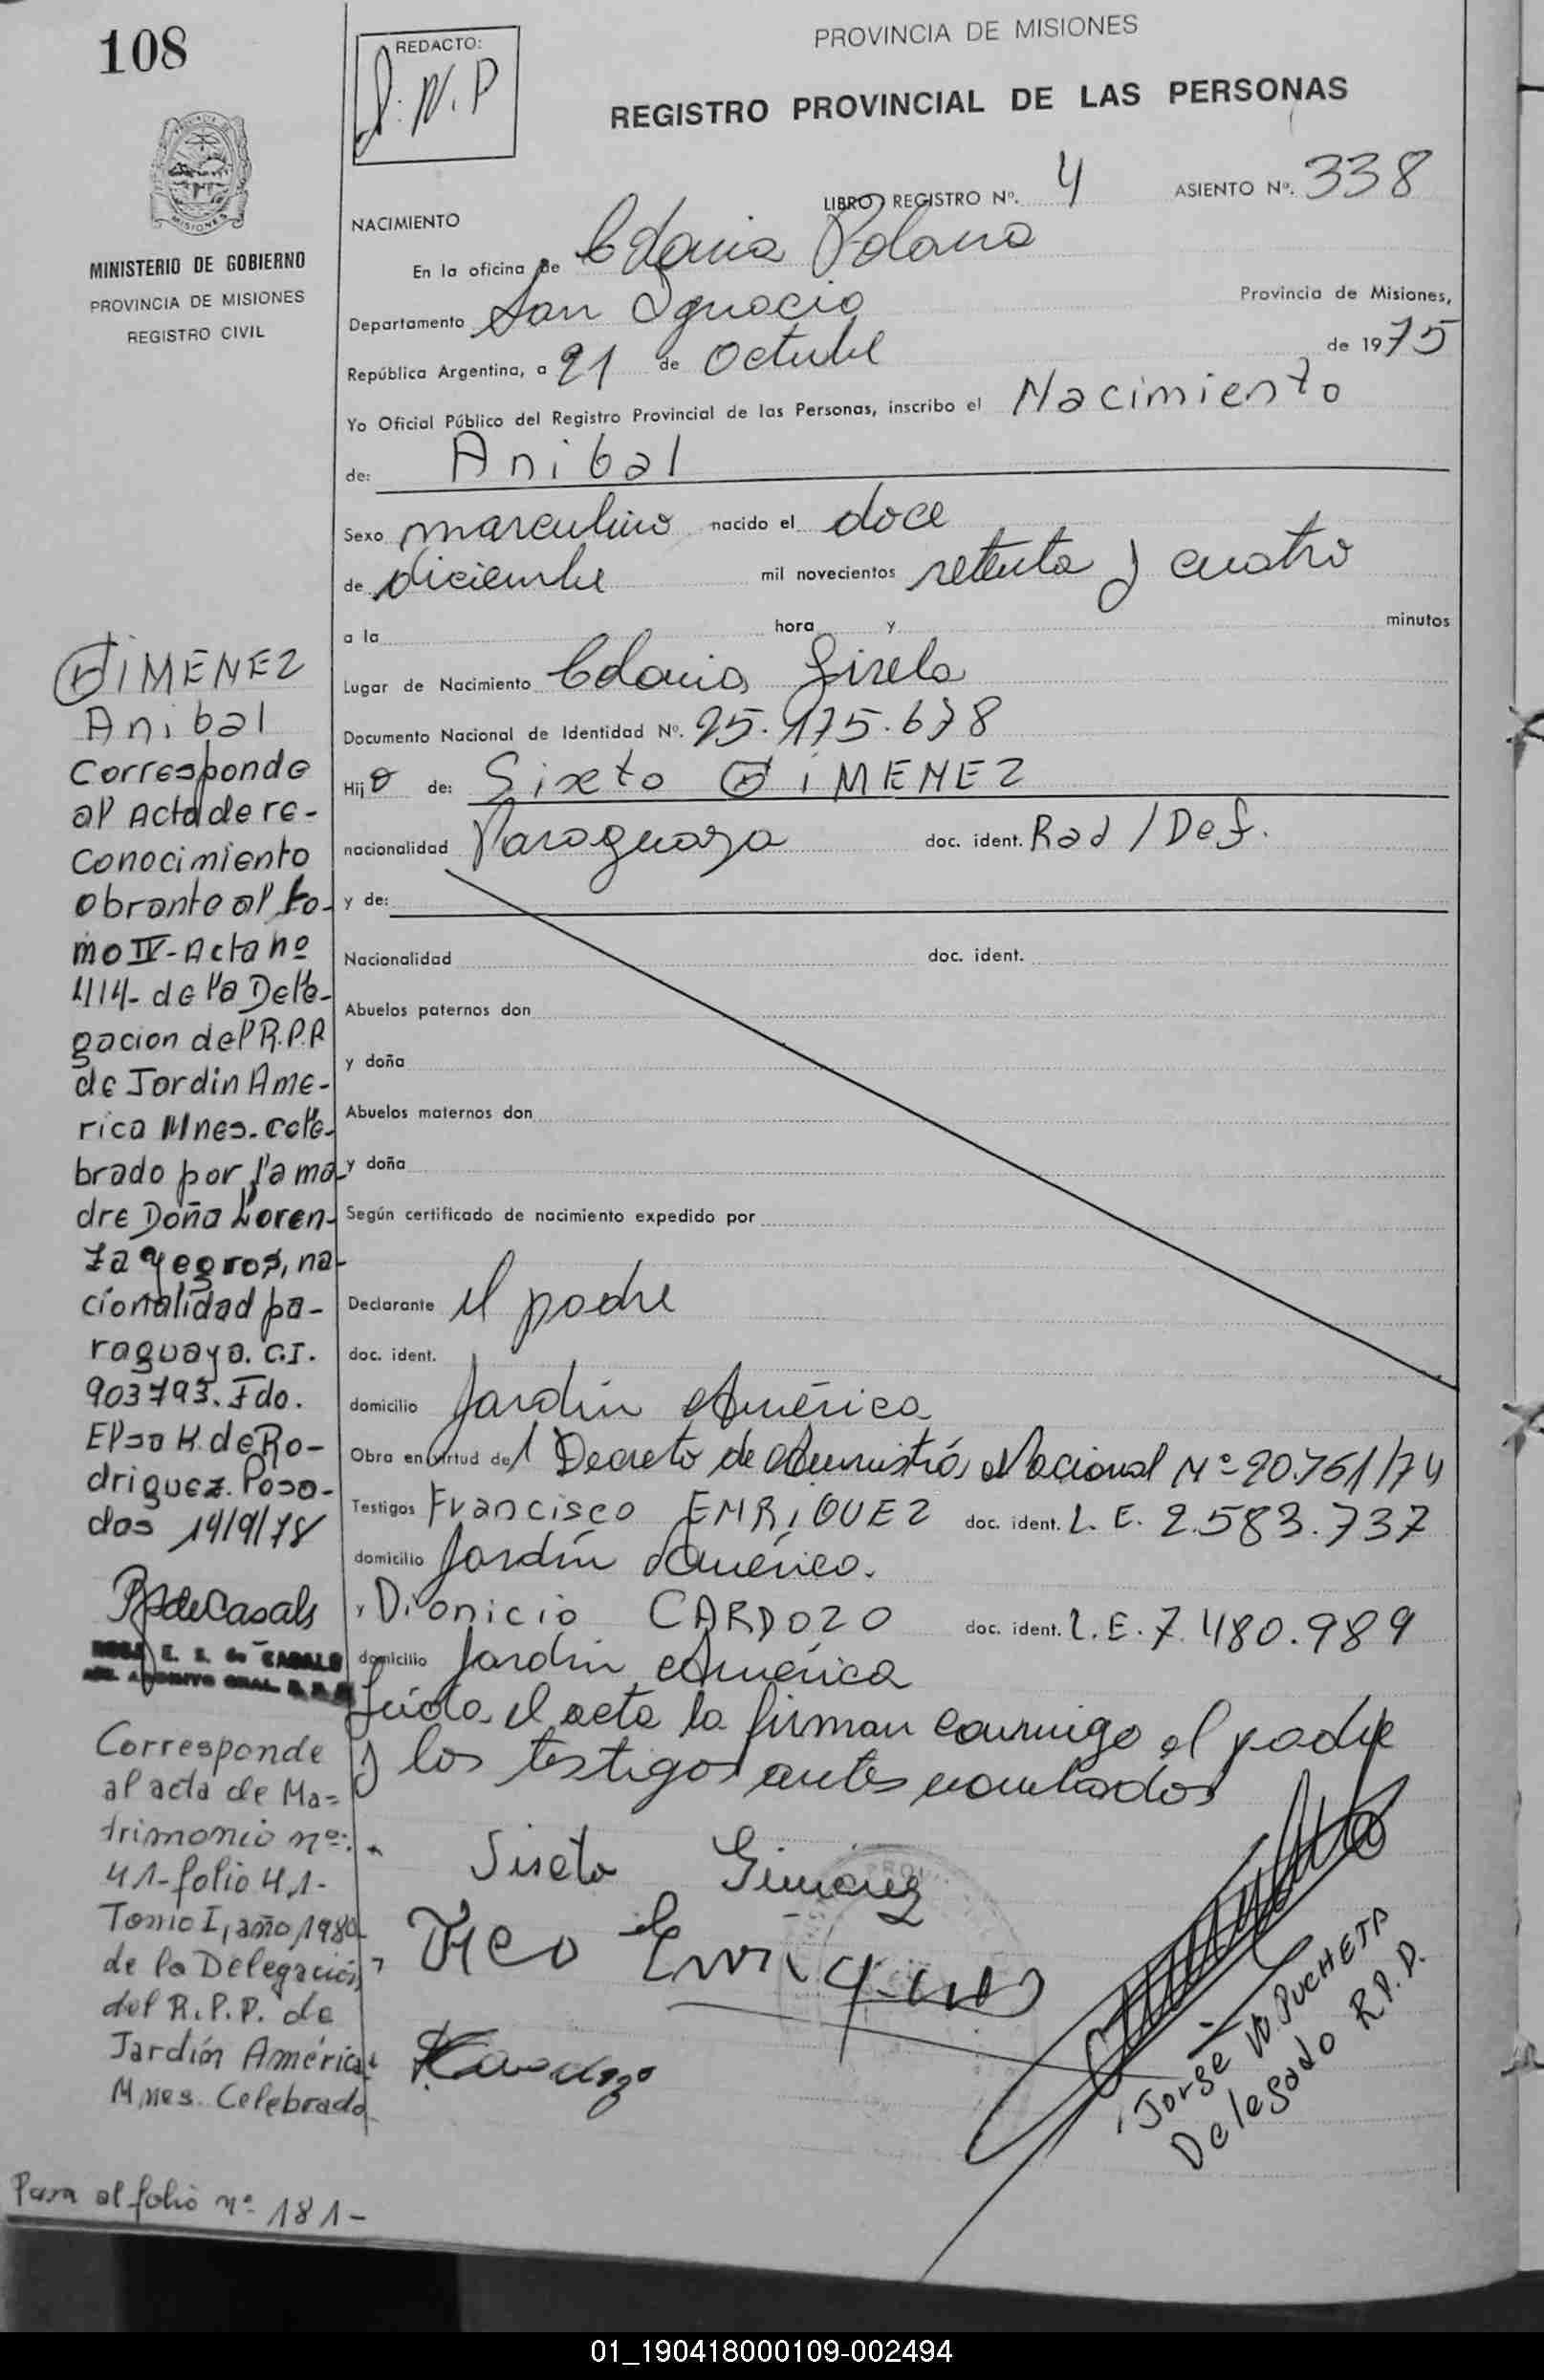 108
REDACTO:
J. N. P
PROVINCIA DE MISIONES
REGISTRO PROVINCIAL DE LAS PERSONAS
MISIONES
MINISTERIO DE GOBIERNO
PROVINCIA DE MISIONES
REGISTRO CIVIL
LIBRO REGISTRO Nº. 4 ASIENTO Nº. 338
NACIMIENTO
En la oficina de Colonia Polana
Departamento San Ignacio Provincia de Misiones,
República Argentina, a 21 de Octubre de 1975
Yo Oficial Público del Registro Provincial de las Personas, inscribo el Nacimiento
de: Anibal
Sexo masculino nacido el doce
de diciembre mil novecientos setenta y cuatro
a la hora y minutos
Lugar de Nacimiento Colonia Gisela
Documento Nacional de Identidad Nº. 25.175.678
Hijo de: Sixto GiMENEZ
nacionalidad Paraguaya doc. ident. Rad / Def.
y de:
Nacionalidad doc. ident.
Abuelos paternos don
y doña
Abuelos maternos don
y doña
Según certificado de nacimiento expedido por
Declarante el padre
doc. ident.
domicilio Jardín América
Obra en virtud del Decreto de Amnistía Nacional Nº 20.751/74
Testigos Francisco ENRiQUEZ doc. ident. L. E. 2.583.737
domicilio Jardín América.
y Dionicio CARDOZO doc. ident. L.E. 7.480.989
domicilio Jardín América
Leída el acta la firman conmigo el padre
y los testigos antes nombrados
Sixto Gimenez
Fico Enriques
Cardozo
Jorge W. PUCHETA
Delegado R.P.P.
GIMENEZ
Anibal
Corresponde
al Acta de re-
conocimiento
obrante al to-
mo IV-Acta nº
414- de la Dele-
gacion del R.P.P.
de Jardin Ame-
rica Mnes. cele-
brado por la ma-
dre Doña Loren-
za Yegros, na-
cionalidad pa-
raguaya. C.I.
903793. Fdo.
Elsa K. de Ro-
driguez. Posa-
das 14/9/78
RdeCasals
ROSA E. S. de CASALS
Corresponde
al acta de Ma=
trimonio nº:
41-folio 41-
Tomo I, año 1980
de la Delegación
del R.P.P. de
Jardín América
Mnes. Celebrado
Pasa al folio nº 181-
01_190418000109-002494